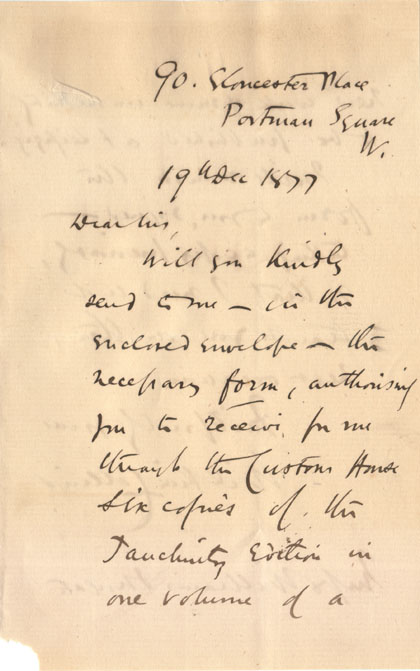 90. Gloucester Place
Portman Square
W.
19th Dec 1877
Dear Sir,
Will you kindly
send to me – in the
enclosed envelope – the
necessary form, authorising
you to receive for me
through the Custom House
six copies of the
Tauchnitz Edition in
one volume of a